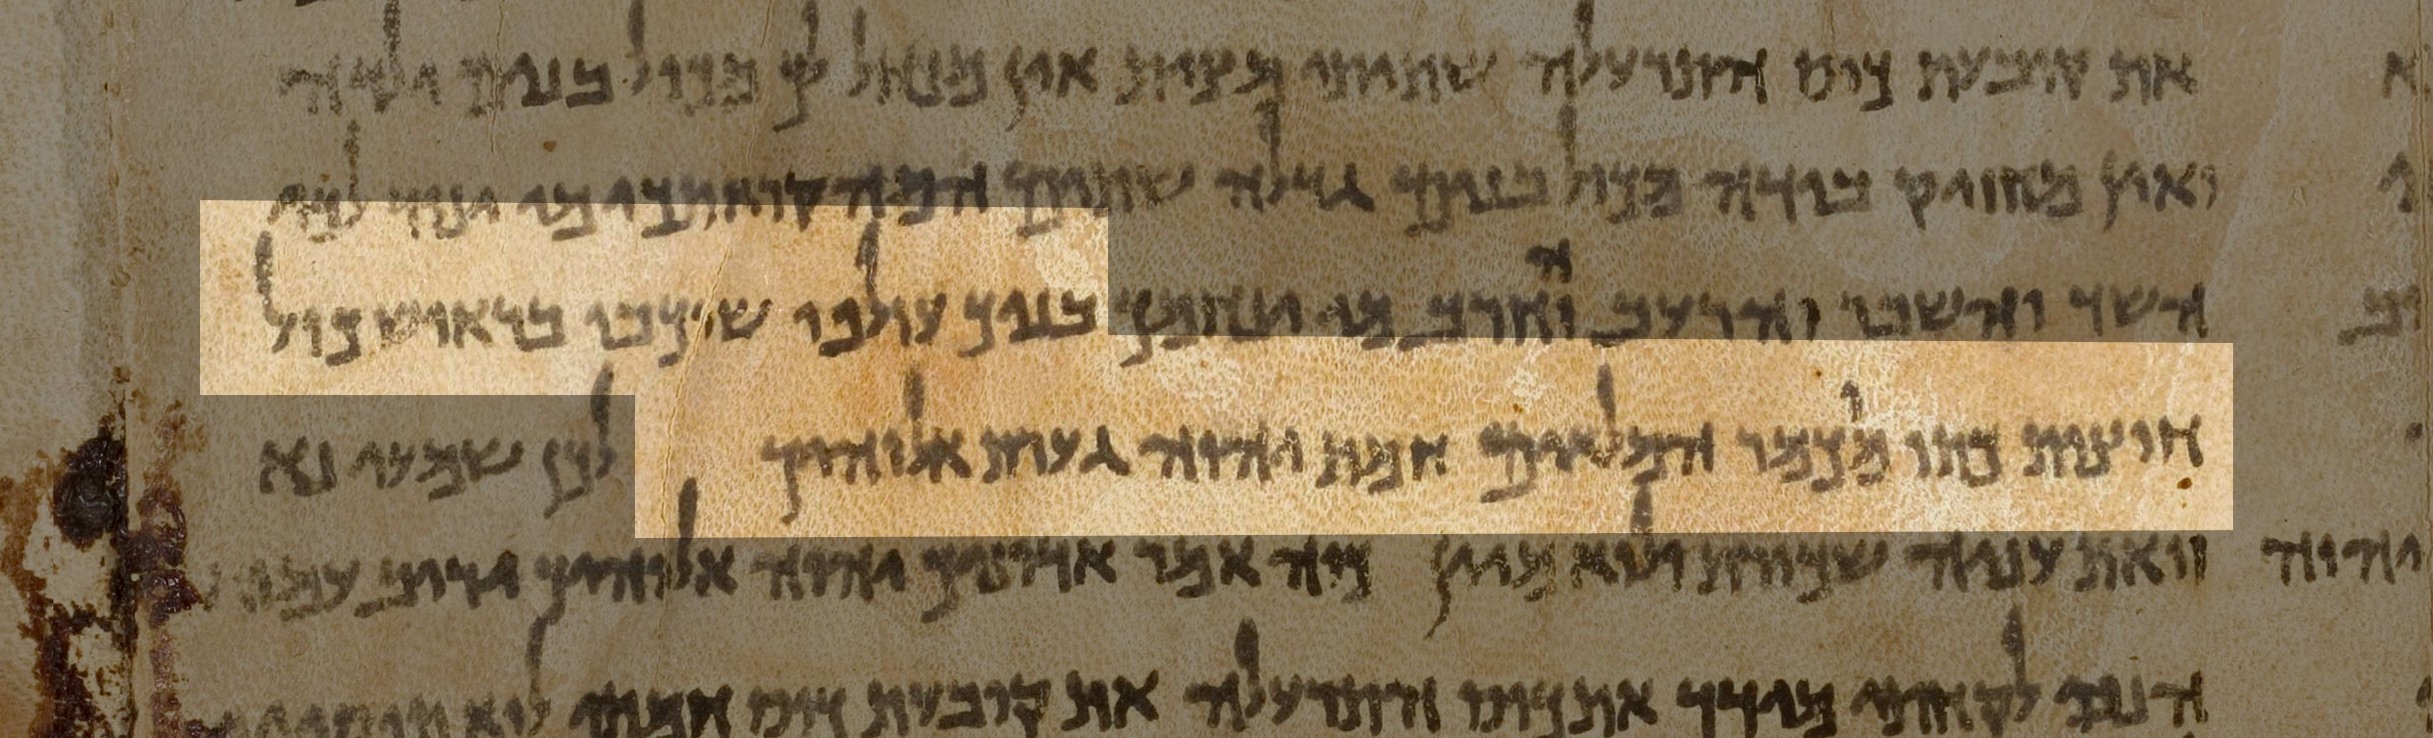 את קובעת כוס התרעלה שתיתי מצית אין מנהל לך מכול בנים ילדה
ואין מחזיק בידה מכול בנים גדלה שתים המה מי ינוד
השד והשבר והרעב והחרב מי ינחמך בניך עולפו שוכבו בראוש כול
חוצות כתו מכמר המליאים חמת יהוה גערת אלוהיך לכן שמעי נא
זואת עניה שכורת ולוא מיין כוה אמר אדוניך יהוה אלוהיך יריב עמו
הנה לקחתי מידך את כוס התרעלה את קובעת כוס חמתי לוא